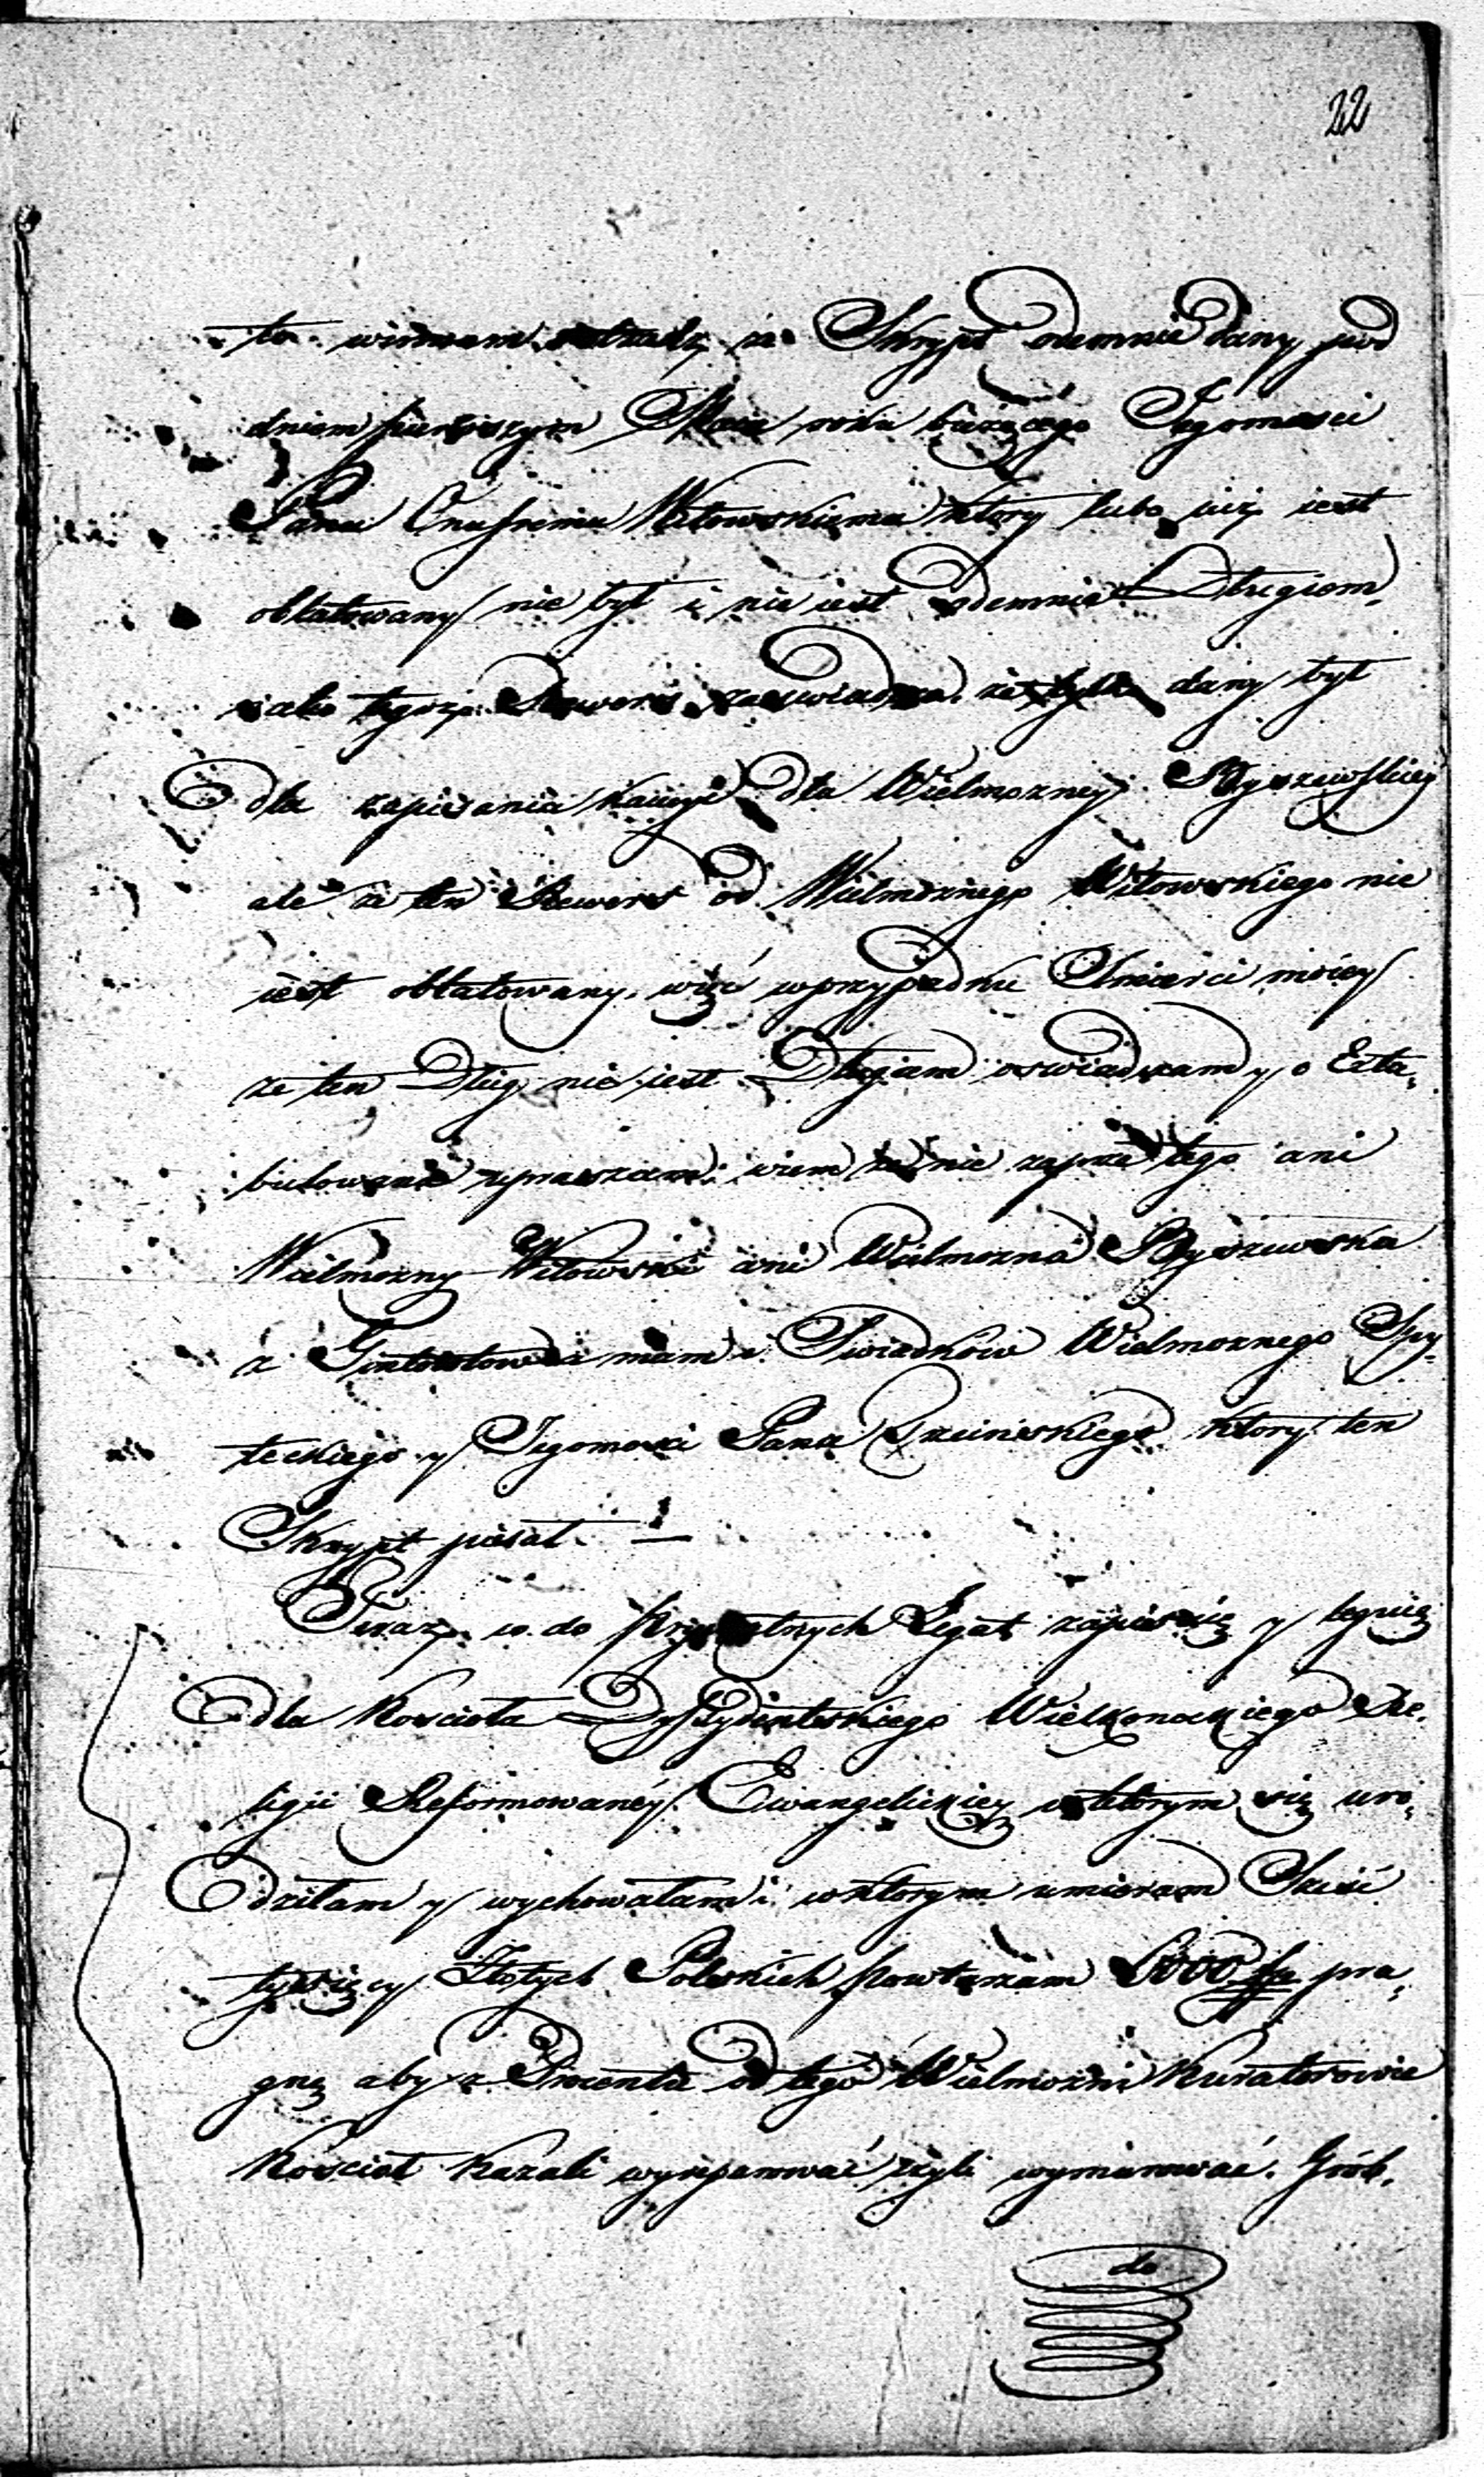 22
to winnam że Skrypt odemnie dany pod
dniem pierwszym Maia roku bieżącego Jegomosci
Panu Onufremu Witowskiemu który lubo już iest
oblatowany nie był i nie iest odemnie Długiem,
iako tegoż Rewers zaswiadcza że tylko dany był
dla zapisania kaucyi dla Wielmozney Byszewskiey
ale że ten Rewers od Wielmożnego Witowskiego nie
iest oblatowany, więc wprzypadku Smierci moiey
że ten Dług nie iest Długiem oswiadczam y o Exta,
bulowanie upraszam: wiem że nie zaprze tego ani
Wielmozny Witowski ani Wielmozna Byszewska
z mam i Swiadków Wielmoznego Szy,
teckiego y Jegomosci Pana który ten
Skrypt pisał. —
Teraz co do prywatnych Legat zapisuię y leguię
dla Koscioła Dyssydentskiego Wielkonockiego Re,
ligii Reformowaney Ewangelickiey wktorym się uro,
dziłam y wychowałam i wktorym umieram Sześć
tysięcy Złotych Polskich powtarzam 6000 pra,
gnę aby z Procentu od tego Wielmożni Kuratorowie
Kosciół kazali wyreperować czyli wymurować. Grób,
do